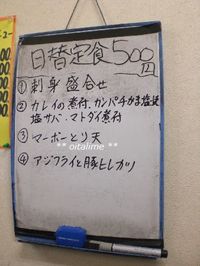 日替定食500
円
① 刺身 盛合せ
② カレイの煮付、カンパチかま塩焼
塩サバ、マトダイ煮付
③ マーボーとり天
④ アジフライと豚ヒレカツ
** oitalime **